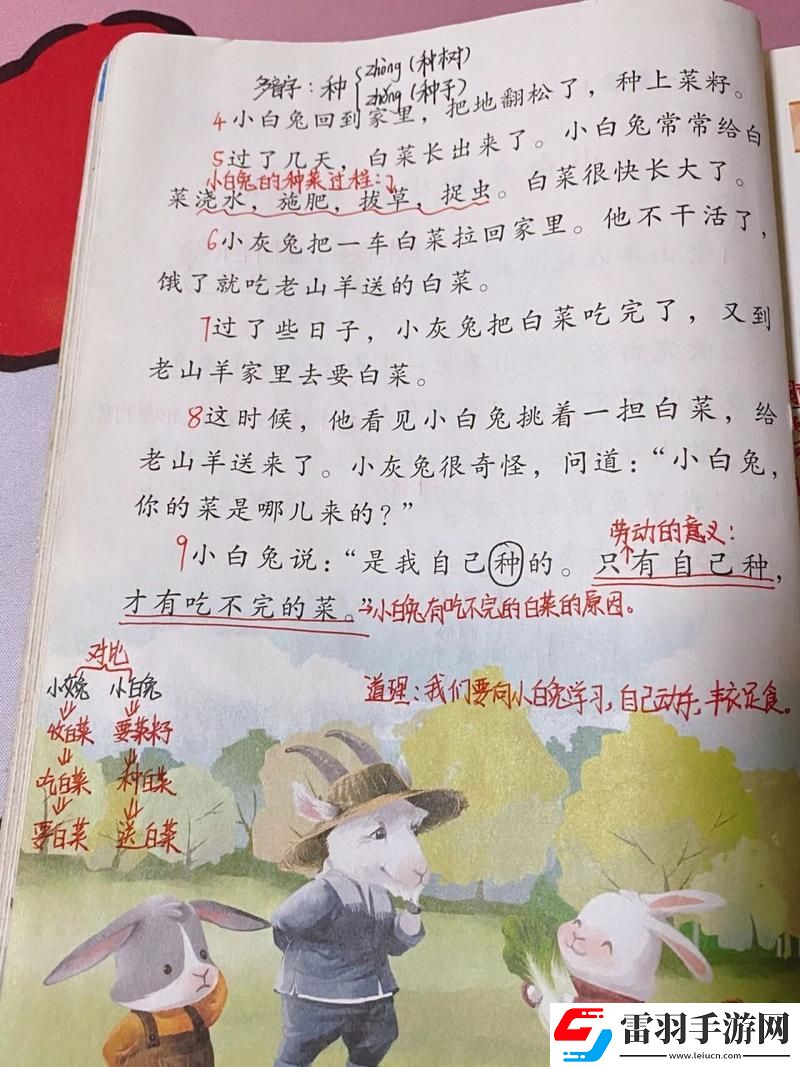 多音字：种 zhòng（种树）
zhǒng（种子）
4小白兔回到家里，把地翻松了，种上菜籽。
5过了几天，白菜长出来了。小白兔常常给白
小白兔的种菜过程：
菜浇水，施肥，拔草，捉虫。白菜很快长大了。
6小灰兔把一车白菜拉回家里。他不干活了，
饿了就吃老山羊送的白菜。
7过了些日子，小灰兔把白菜吃完了，又到
老山羊家里去要白菜。
8这时候，他看见小白兔挑着一担白菜，给
老山羊送来了。小灰兔很奇怪，问道：“小白兔，
你的菜是哪儿来的？”
劳动的意义：
9小白兔说：“是我自己种的。只有自己种，
才有吃不完的菜。”→小白兔有吃不完的白菜的原因。
对比
小灰兔 小白兔
收白菜 要菜籽
吃白菜 种白菜
要白菜 送白菜
道理：我们要向小白兔学习，自己动手，丰衣足食。
雷羽手游网
www.leiucn.com